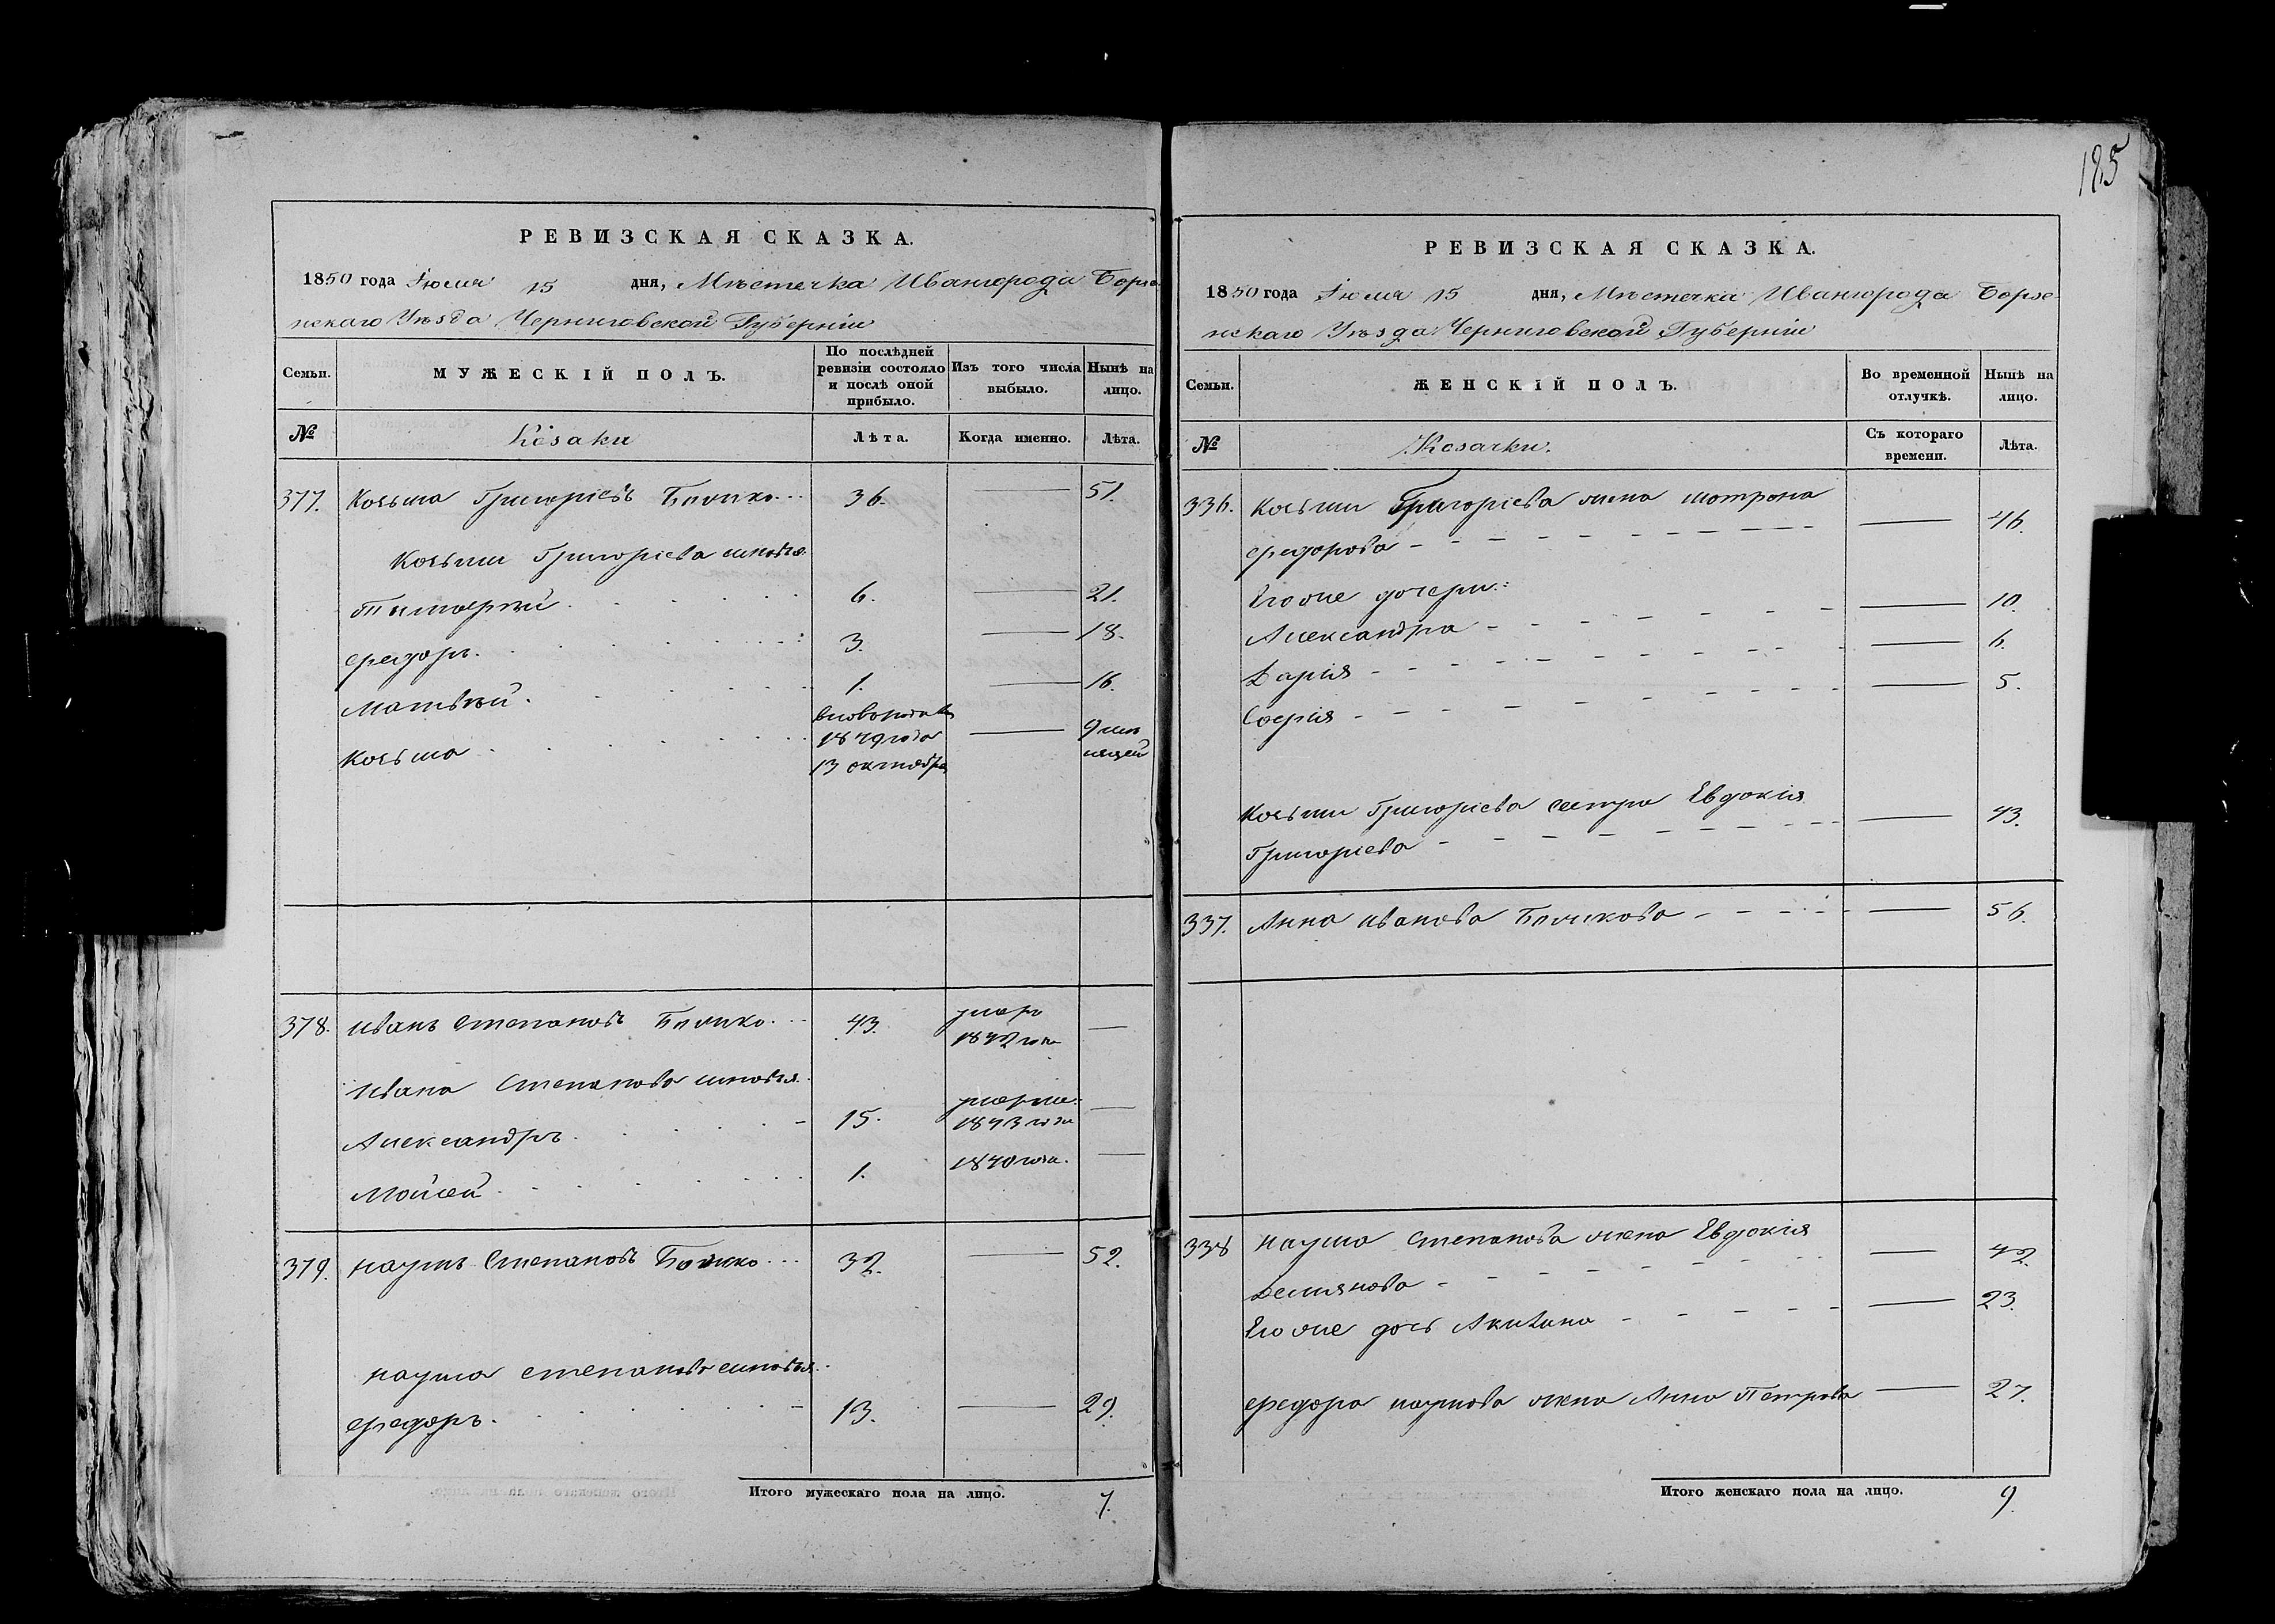 185
РЕВИЗСКАЯ СКАЗКА.
1850 года Іюля 15 дня, Мѣстечка Иваногорода Борзе-
нскаго Уѣзда Черниговской Губерніи
Семьи. МУЖЕСКІЙ ПОЛЪ. По послѣдней ревизіи состояло и послѣ оной прибыло. Изъ того числа выбыло. Нынѣ на лицо.
№ Козаки Лѣта. Когда именно. Лѣта.
377. Козьма Григоріевъ 36. — 51.
Козьмы Григоріева сыновья
Тимофей 6. 21.
Федоръ 3. — 18.
Матвѣй 1. — 16.
Козьма 1849 года 13 октября — 9 месяцей
378. Иванъ Степановъ 43. умеръ 1842 года —
Ивана Степанова сыновья
Александръ 15. 1843 года —
Мойсей 1. 1840 года. —
379. Наумъ Степановъ 32. — 52.
Наума Степанова сыновья
Федоръ 13. — 29.
Итого мужескаго пола на лицо. 7.
РЕВИЗСКАЯ СКАЗКА.
1850 года Іюля 15 дня, Мѣстечка Иваногорода Борзе-
нскаго Уѣзда Черниговской Губерніи
Семьи. ЖЕНСКІЙ ПОЛЪ. Во временной отлучкѣ. Нынѣ на лицо.
№ Козачки. Съ котораго времени. Лѣта.
336. Козьмы Григоріева жена Мотрона
Федорова — 46.
Его же дочери:
Александра — 10.
Дарія — 6.
Софія — 5.
Козьмы Григоріева сестра Евдокія
Григоріева — 43.
337. Анна Иванова — 56.
338 Наума Степанова жена Евдокія
Демянова — 42.
Его же дочь Акилина — 23.
Федора Наумова жена Анна Петрова — 27.
Итого женскаго пола на лицо. 9.